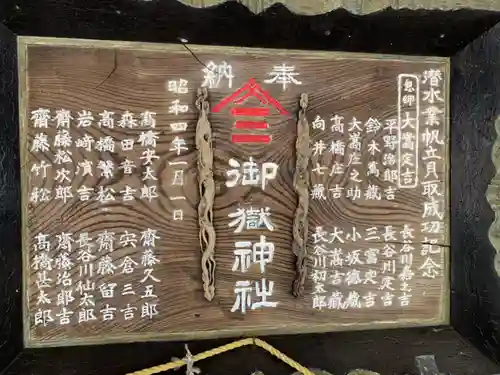 奉納
潜水業帆立貝取成功記念
息郷 大嵩定吉
平野治郎吉 長谷川嘉之吉
鈴木萬蔵 長谷川定吉
大嵩庄之助 三冨史吉
高橋庄吉 小坂徳蔵
向井七蔵 大嵩吉蔵
長谷川初太郎
三
御嶽神社
昭和四年一月一日
高橋安太郎 齋藤久五郎
森田音吉 宍倉三吉
高橋繁松 齋藤留吉
岩崎濱吉 長谷川仙太郎
齋藤松次郎 齋藤治郎吉
齋藤竹松 高橋甚太郎